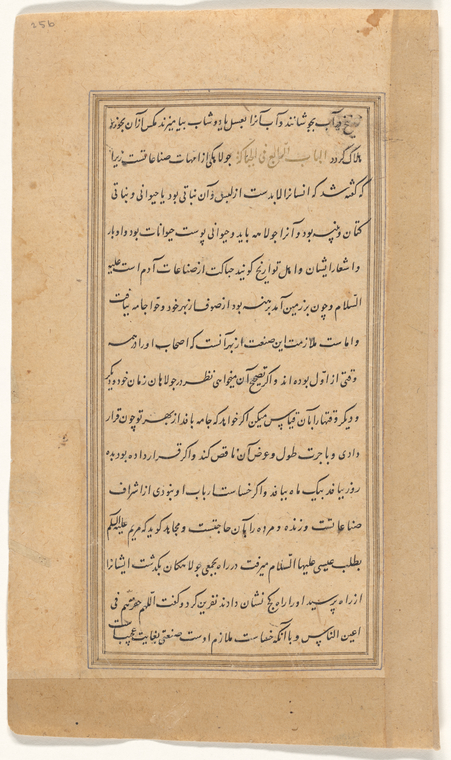 156
بجوشانند و آب آنرا بعسل یا دوشاب بیامیزند مکس از آن بخورد
هلاک کردد الباب الرابع فی الحیاکة جولاهکی از امهات صناعاتست زیرا
که کفته شد که انسانرا لابدست از لبس و آن نباتی بود یا حیوانی و نباتی
کتان و پنبه بود و آنرا جولاهه باید و حیوانی پوست حیوانات بود و اوبار
و اشعار ایشان و اهل تواریخ کویند حیاکت از صناعات آدم است علیه
السلام و چون بر زمین آمد برهنه بود از صوف از بهر خود و حوا جامه ببافت
و اما ملازمت این صنعت از بهر آنست که اصحاب او در همه
وقتی از اول بوده اند و اکر تصحیح آن میخواهی نظر در جولاهان زمان خود و دیکر
و دیکر وقتها را بآن قیاس میکن اکر خواهد که جامه بافد از بهر تو چون قرار
دادی و باجرت طول و عرض آن ناقص کند و اکر قرار داده بود بده
روز ببافد بیک ماه ببافد و اکر خساست ارباب او نبودی از اشراف
صناعاتست و زنده و مرده را بآن حاجتست و مجاهد کوید که مریم علیها السلم
بطلب عیسی علیها السلام میرفت در راه بجمعی جولاهکان بکذشت ایشانرا
از راه پرسید او را راه کج نشان دادند نفرین کرد و کفت اللهم حقرهم فی
اعین الناس و با آنکه خساست ملازم اوست صنعتی بغایت عجیب است